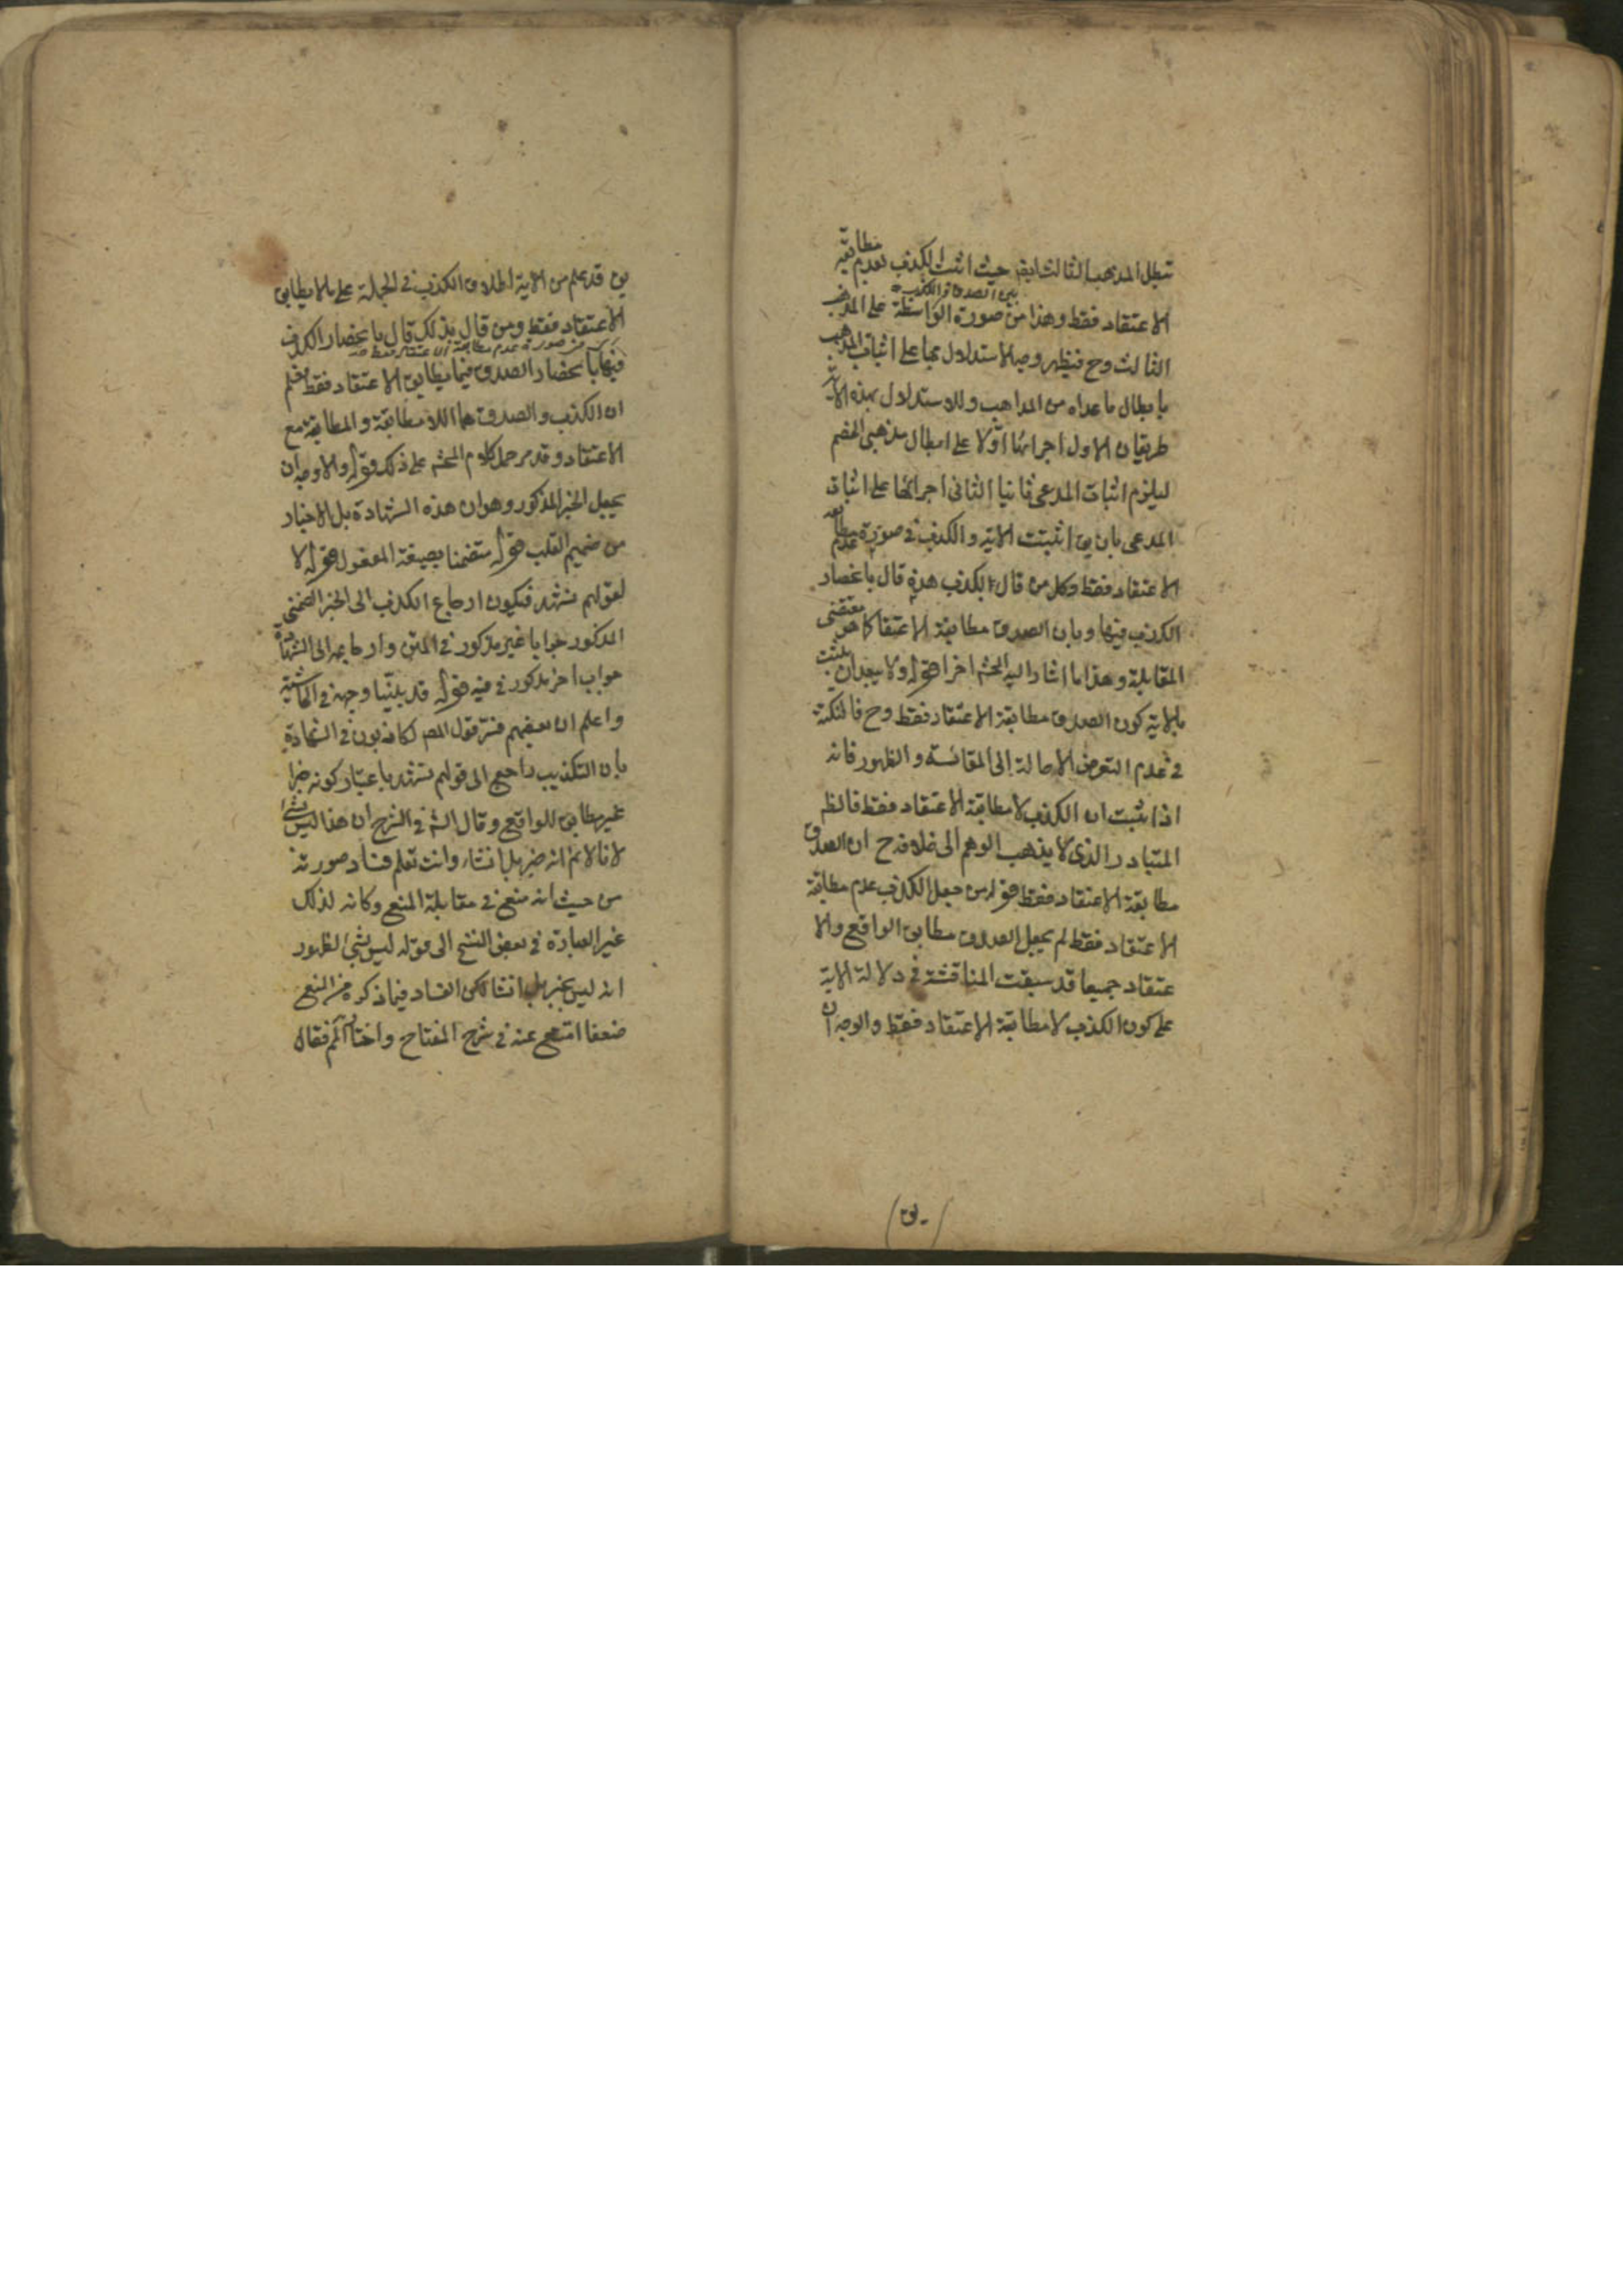 تبطل المذهب الثالث ايضا حيث اثبت الكذب لعدم مطابقة
الاعتقاد فقط وهذا من صورة الواسطة على المذهب
بين الصدق والكذب
الثالث وح فيظهر وجه الاستدلال بها على اثبات المذهب
بابطال ما عداه من المذاهب وللاستدلال بهذه الاية
طريقان الاول اجرائها اولا على ابطال مذهبى الخصم
ليلزم اثبات المدعى ثانيا الثانى اجرائها على اثبات
المدعى بان يق اثبتت الاية والكذب فى صورة عدم مطابقة
الاعتقاد فقط وكل من قال بالكذب هذه قال بانحصار
الكذب فيها وبان الصدق مطابقة الاعتقاد كما هو مقتضى
المقابلة وهذا ما اشار اليه المحشى اخرا قوله ولا يبعد ان يثبت
بالاية كون الصدق مطابقة الاعتقاد فقط وح فالنكتة
فى عدم التعرض الاحالة الى المقائسة والظهور فانه
اذا ثبت ان الكذب لا مطابقة الاعتقاد فقط فالظ
المتبادر الذى لا يذهب الوهم الى خلافه ح ان الصدق
مطابقة الاعتقاد فقط قوله من جعل الكذب عدم مطابقة
الاعتقاد فقط لم يجعل الصدق مطابق الواقع والا
عتقاد جميعا قد سبقت المناقشة فى دلالة الاية
على كون الكذب لا مطابقة الاعتقاد فقط والوجه ان
يق قد علم من الاية اطلاق الكذب فى الجملة على ما لا يطابق
الاعتقاد فقط ومن قال بذلك قال بانحصار الكذب
من صورة عدم مطابقة الاعتقاد فقط
فيها بانحصار الصدق فيما يطابق الاعتقاد فقط فعلم
ان الكذب والصدق هما اللا مطابقة والمطابقة مع
الاعتقاد وقد مر حمل كلام المحشى على ذلك قوله والاوجه ان
يجعل الخبر المذكور وهو ان هذه الشهادة بل الاخبار
من صميم القلب قوله متضمنا بصيغة المفعول قوله لا
لقولهم نشهد فيكون ارجاع الكذب الى الخبر الضمنى
المذكور جوابا غير مذكور فى المتن وارجاعه الى الشهادة
جواب اخر مذكور فيه قوله قد بينا وجهه فى الحاشية
واعلم ان بعضهم فسر قول المص لكاذبون فى الشهادة
بان التكذيب راجع الى قولهم نشهد باعتبار كونه خبرا
غير مطابق للواقع وقال الش فى الشرح ان هذا ليس بشئ
لانا لا نم انه خبر بل انشاء وانت تعلم فساد صورته
من حيث انه منع فى مقابلة المنع وكانه لذلك
غير العبارة فى بعض النسخ الى قوله ليس بشئ لظهور
انه ليس بخبر بل انشا لكن الفساد فيما ذكره من المنع
ضعفا امتنع عنه فى شرح المفتاح واختار فقال